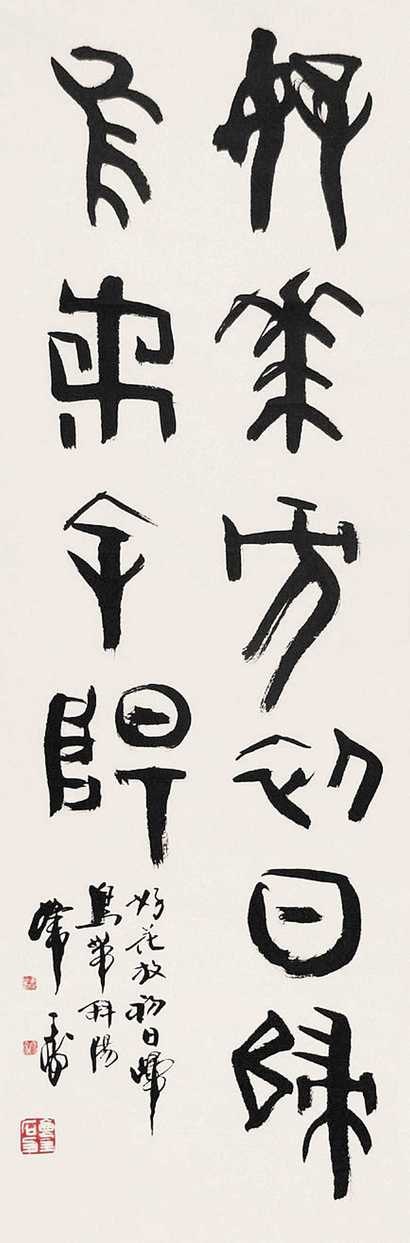 好華方初日歸
鳥帶余陽
好花放初日歸
鳥帶斜陽